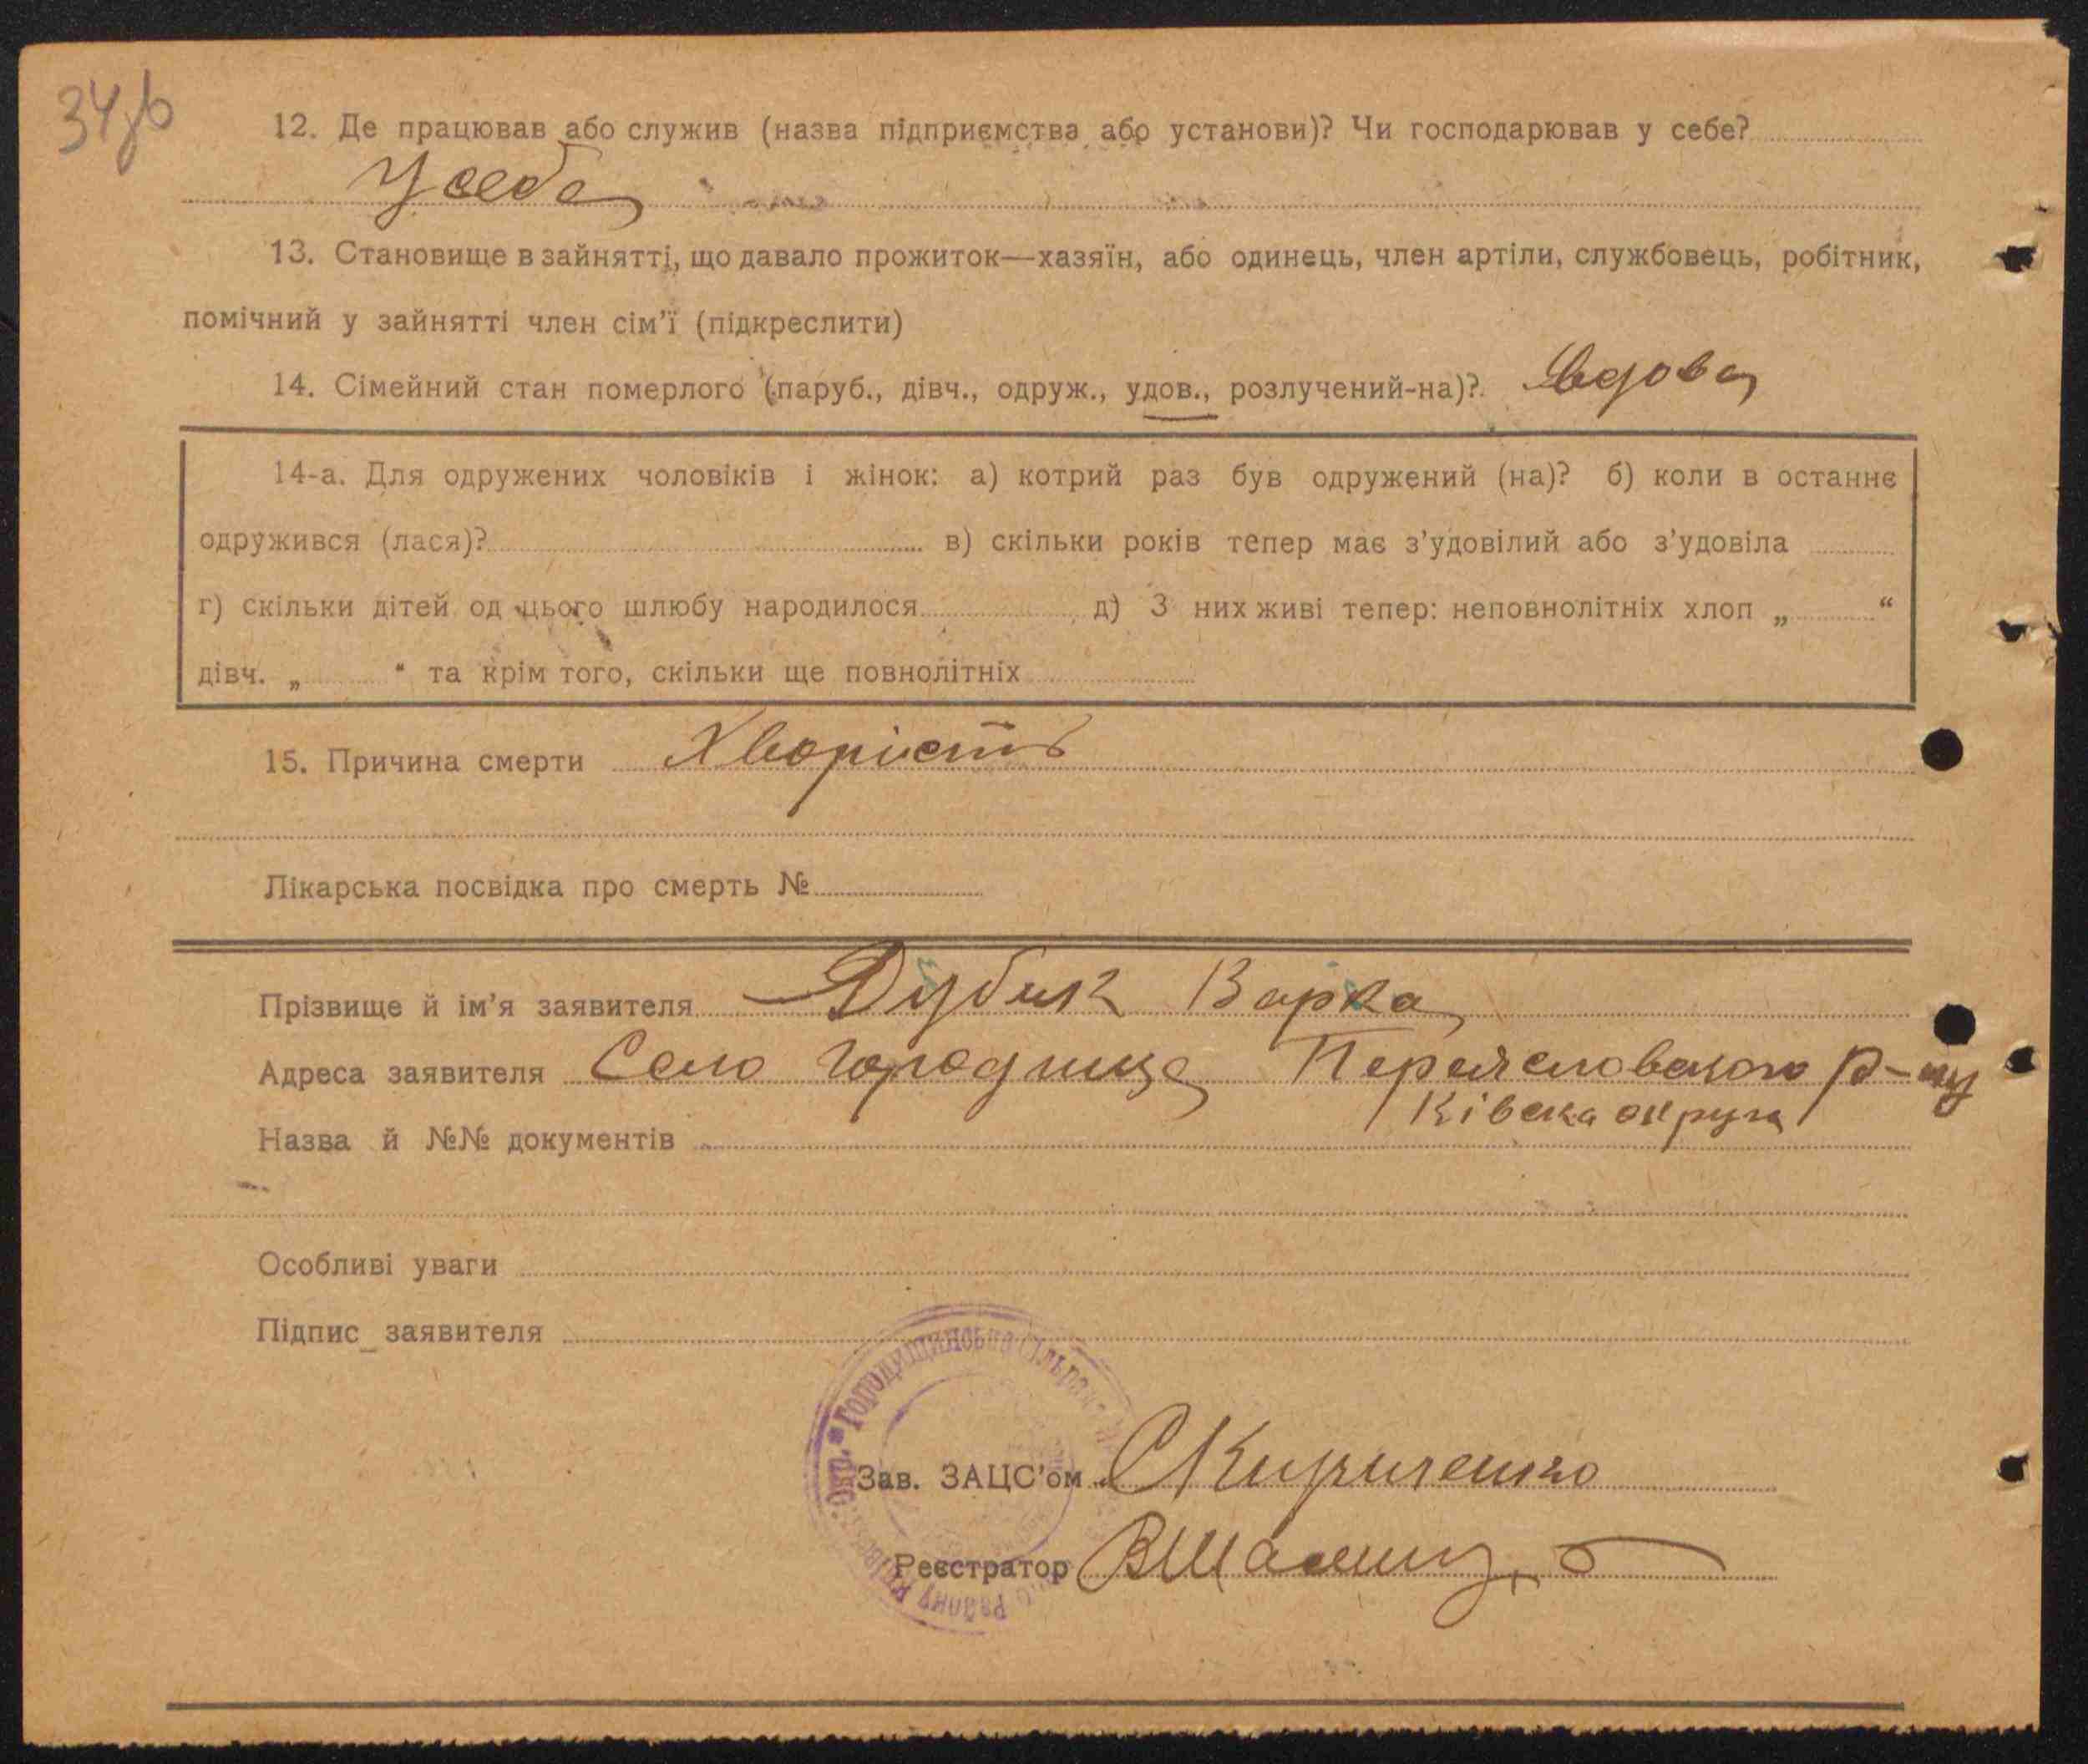 34зв
12. Де працював або служив (назва підприємства або установи)? Чи господарював у себе?
У себе
13. Становище в зайнятті, що давало прожиток—хазяїн, або одинець, член артіли, службовець, робітник,
помічний у зайнятті член сім'ї (підкреслити)
14. Сімейний стан померлого (паруб., дівч., одруж., удов., розлучений-на)? Вдова
14-а. Для одружених чоловіків і жінок: а) котрий раз був одружений (на)? б) коли в останнє
одружився (лася)? в) скільки років тепер має з'удовілий або з'удовіла
г) скільки дітей од цього шлюбу народилося д) З них живі тепер: неповнолітніх хлоп „ “
дівч. „ “ та крім того, скільки ще повнолітніх
15. Причина смерти Хворість
Лікарська посвідка про смерть №
Прізвище й ім'я заявителя Дубик Варка
Адреса заявителя Село Городище Переяславського р-ну
Київска округа
Назва й №№ документів
Особливі уваги
Підпис заявителя
Городищинська сільрада
району Київської Окр.
Зав. ЗАЦС'ом С Кириченко
Реєстратор